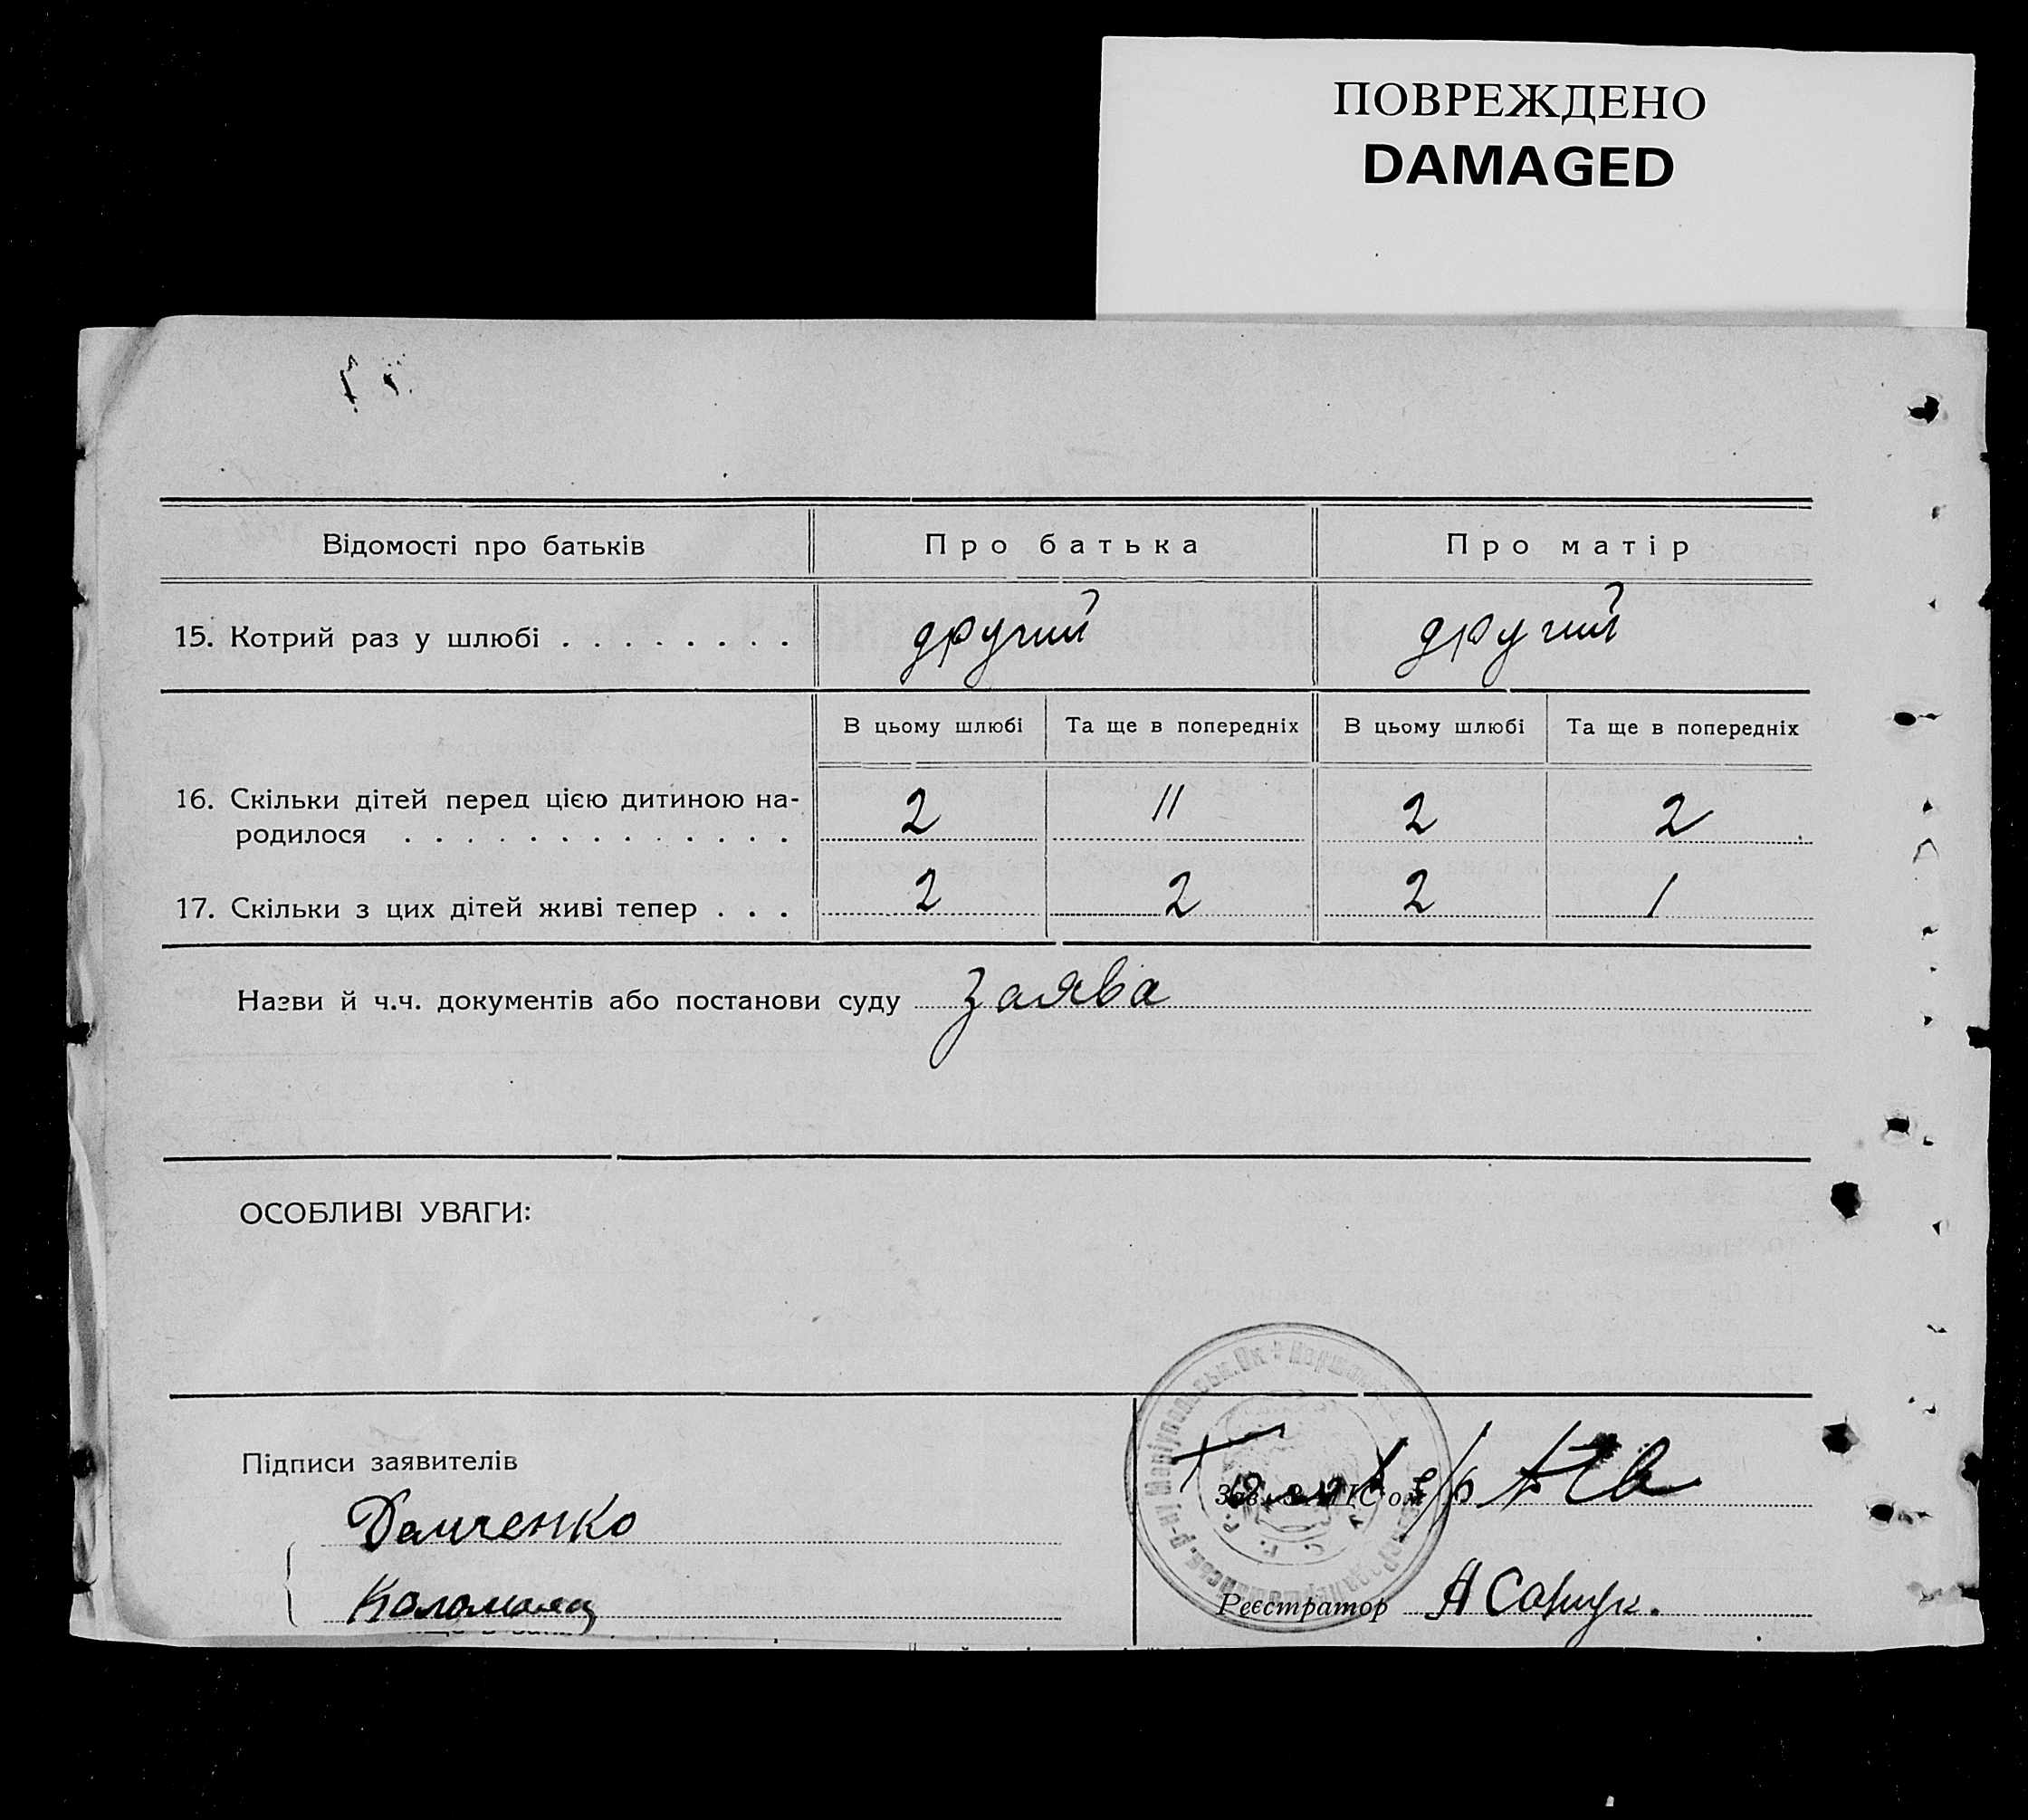 ПОВРЕЖДЕНО
DAMAGED
Відомості про батьків
Про батька
Про матір
15. Котрий раз у шлюбі . . . . . . . .
другий
другий
В цьому шлюбі
Та ще в попередніх
В цьому шлюбі
Та ще в попередніх
16. Скільки дітей перед цією дитиною на-
родилося . . . . . . . . . . . . .
2
11
2
2
17. Скільки з цих дітей живі тепер . . .
2
2
2
1
Назви й ч.ч. документів або постанови суду
заява
ОСОБЛИВІ УВАГИ:
Підписи заявителів
Демченко
Реєстратор